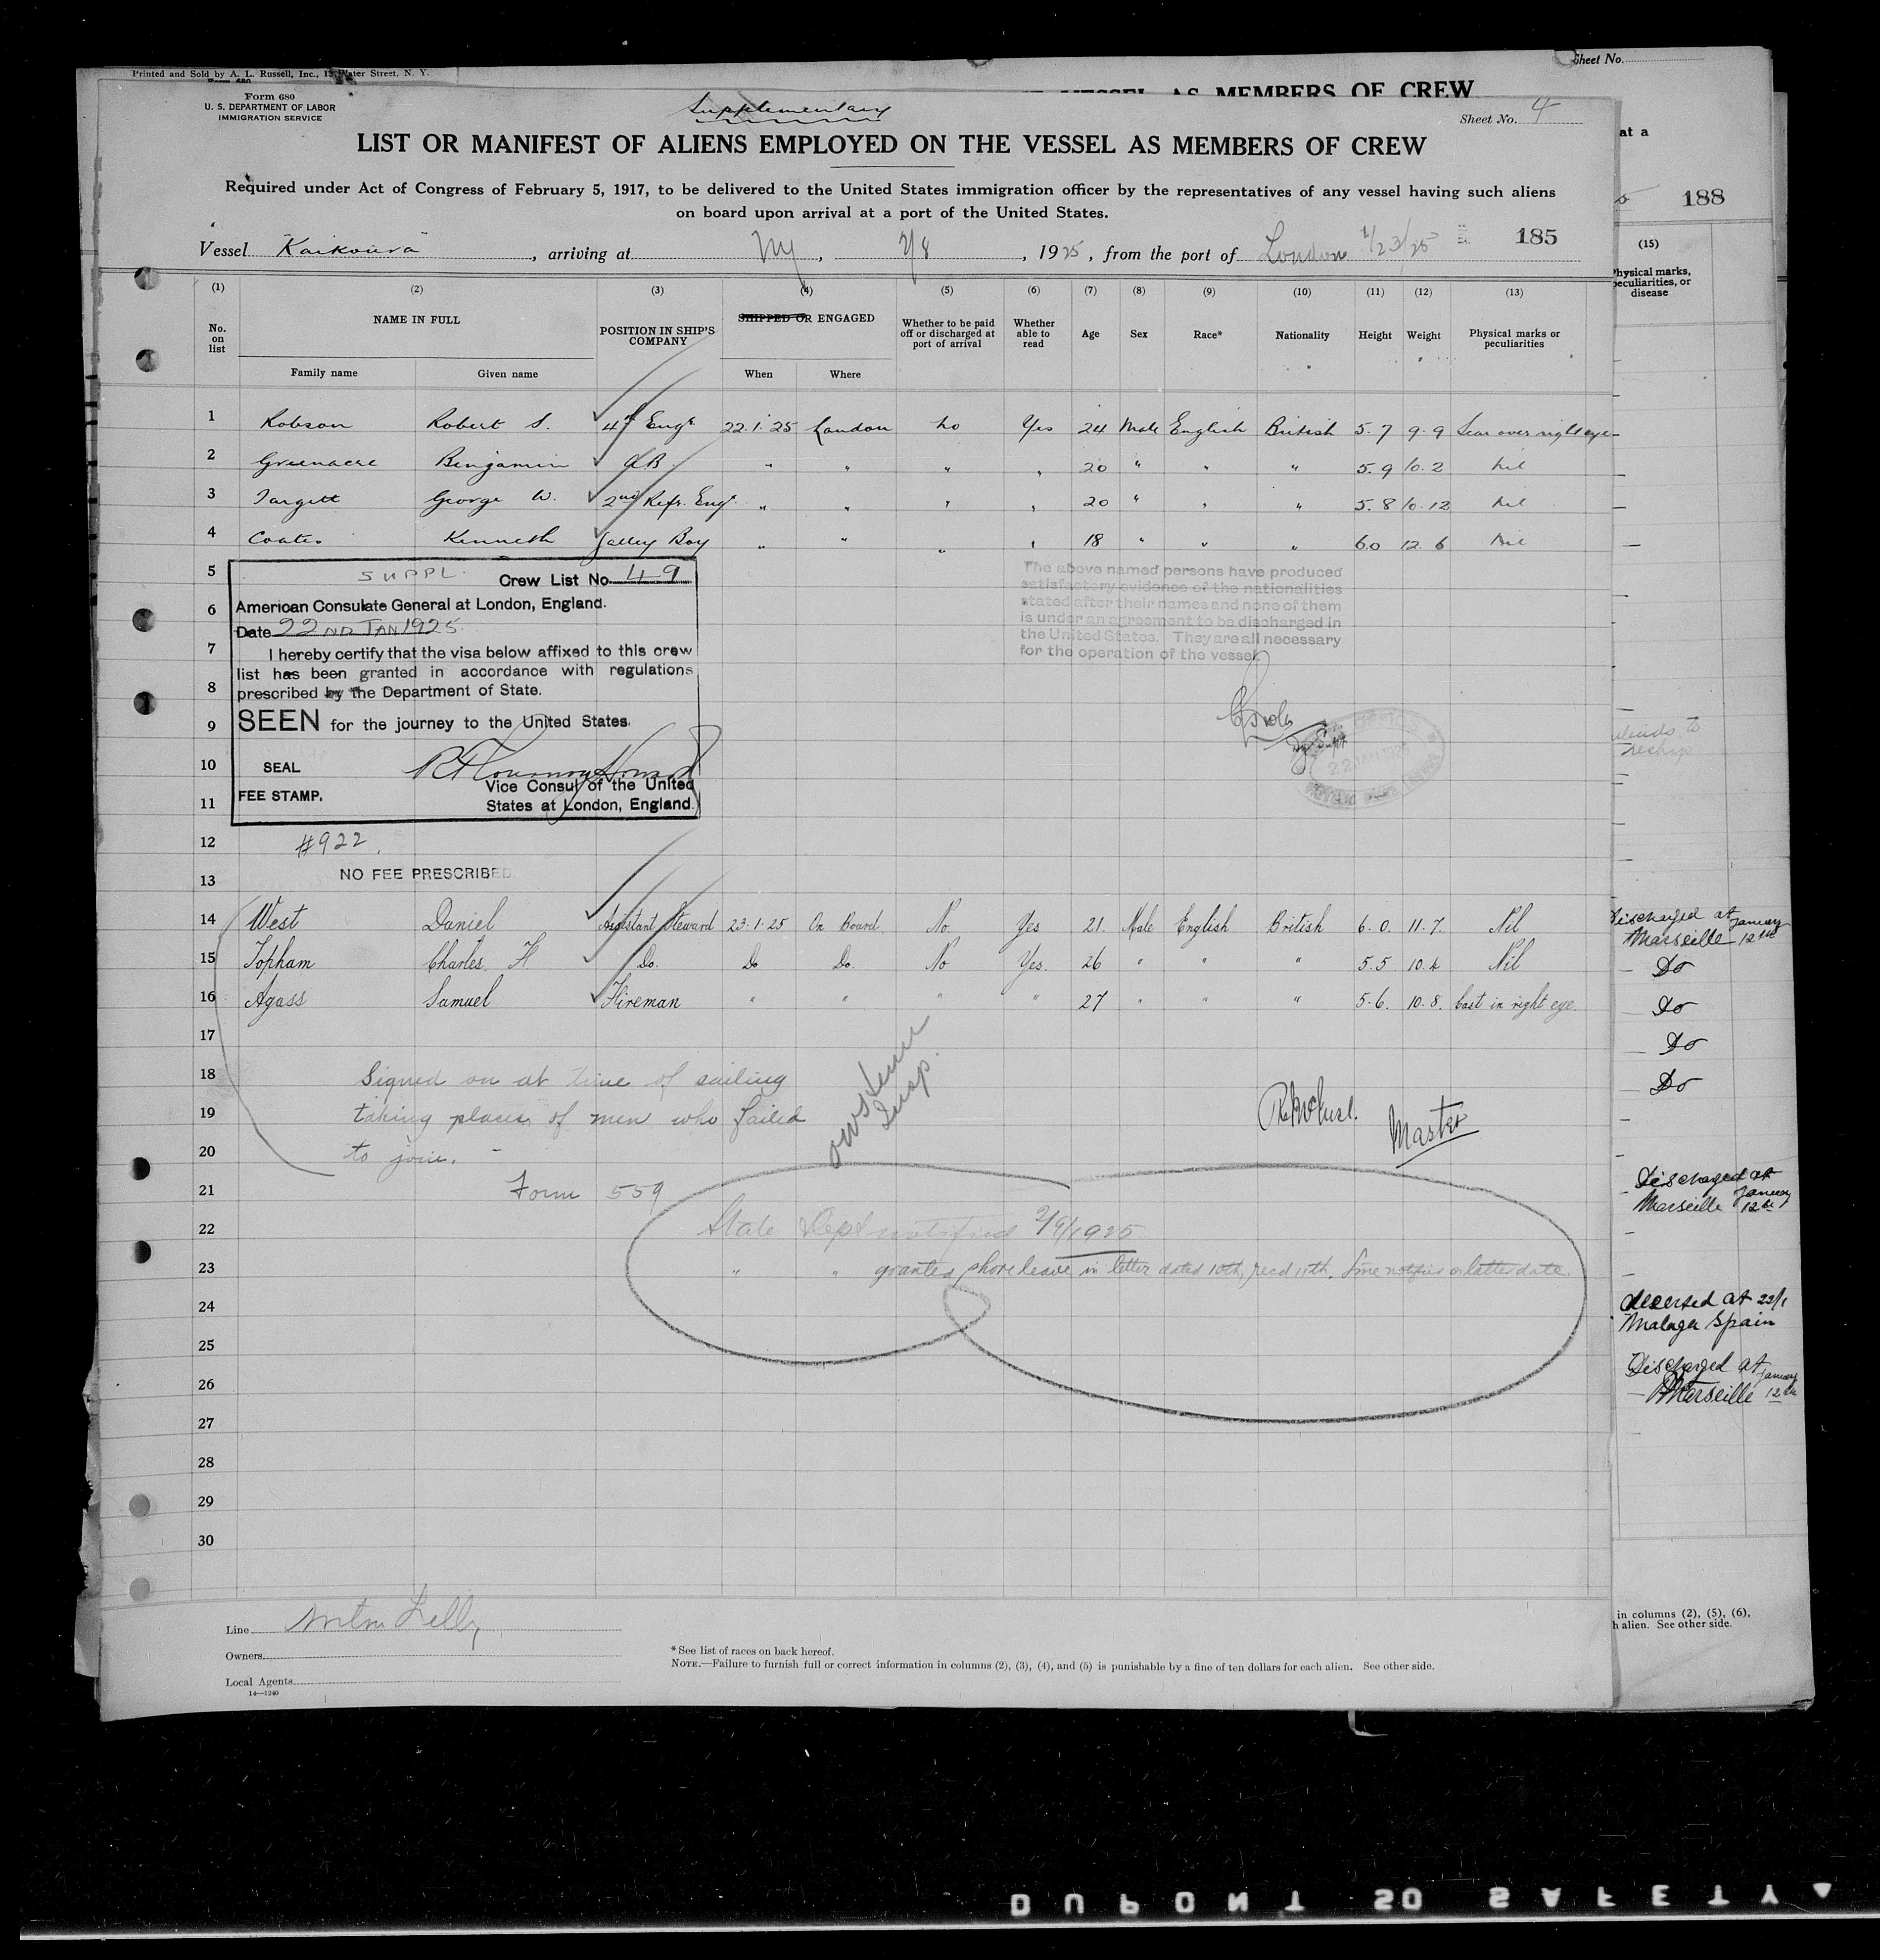 Printed and Sold by A. L. Russell, Inc., Water Street, N. Y.
Sheet No.
AS MEMBERS OF CREW
Form 680
U. S. DEPARTMENT OF LABOR
IMMIGRATION SERVICE
Supplementary
Sheet No. 4
LIST OR MANIFEST OF ALIENS EMPLOYED ON THE VESSEL AS MEMBERS OF CREW
Required under Act of Congress of February 5, 1917, to be delivered to the United States immigration officer by the representatives of any vessel having such aliens
on board upon arrival at a port of the United States.
Vessel "Kaikoura", arriving at NY, 2/8, 1925, from the port of London 1/23/25 185
(1) (2) (3) (4) (5) (6) (7) (8) (9) (10) (11) (12) (13)
No. on list NAME IN FULL POSITION IN SHIP'S COMPANY SHIPPED OR ENGAGED Whether to be paid off or discharged at port of arrival Whether able to read Age Sex Race* Nationality Height Weight Physical marks or peculiarities
Family name Given name When Where
1 Robson Robert S. 4th Engr. 22.1.25 London No Yes 24 Male English British 5.7 9.9 Scar over right eye
2 Greenacre Benjamin AB " " " " 20 " " " 5.9 10.2 Nil
3 Targett George W. 2nd Refr. Engr. " " " " 20 " " " 5.8 10.12 Nil
4 Coates Kenneth Galley Boy " " " " 18 " " " 6.0 12.6 Nil
5
6
7
8
9
10
11
SUPPL. Crew List No. 49
American Consulate General at London, England.
Date 22ND JAN 1925.
I hereby certify that the visa below affixed to this crew
list has been granted in accordance with regulations
prescribed by the Department of State.
SEEN for the journey to the United States.
SEAL
Vice Consul of the United
FEE STAMP. States at London, England.
The above named persons have produced
satisfactory evidence of the nationalities
stated after their names and none of them
is under an agreement to be discharged in
the United States. They are all necessary
for the operation of the vessel.
22 JAN 1925
12 #922.
13 NO FEE PRESCRIBED.
14 West Daniel Assistant Steward 23.1.25 On Board. No. Yes 21. Male English British 6.0. 11.7. Nil
15 Topham Charles. H Do. Do Do. No Yes. 26 " " " 5.5. 10.4 Nil
16 Agass Samuel Fireman " " " " 27 " " " 5.6. 10.8. Cast in right eye.
17
18 Signed on at time of sailing
19 taking places of men who failed
20 to join.
Insp.
Master
21 Form 559
22 State Dept notified 2/9/1925
23 " " granted shore leave in letter dated 10th, recd 11th. Line notified on latter date.
24
25
26
27
28
29
30
Line
Owners
Local Agents
14—1240
*See list of races on back hereof.
NOTE.—Failure to furnish full or correct information in columns (2), (3), (4), and (5) is punishable by a fine of ten dollars for each alien. See other side.
at a
188
(15)
Physical marks,
peculiarities, or
disease
Discharged at
Marseille January 12th
Do
Do
Do
Do
Discharged at
Marseille January 12th
deserted at 22/1
Malaga Spain
Discharged at
Marseille January 12th
in columns (2), (5), (6),
h alien. See other side.
DUPONT SO SAFETY